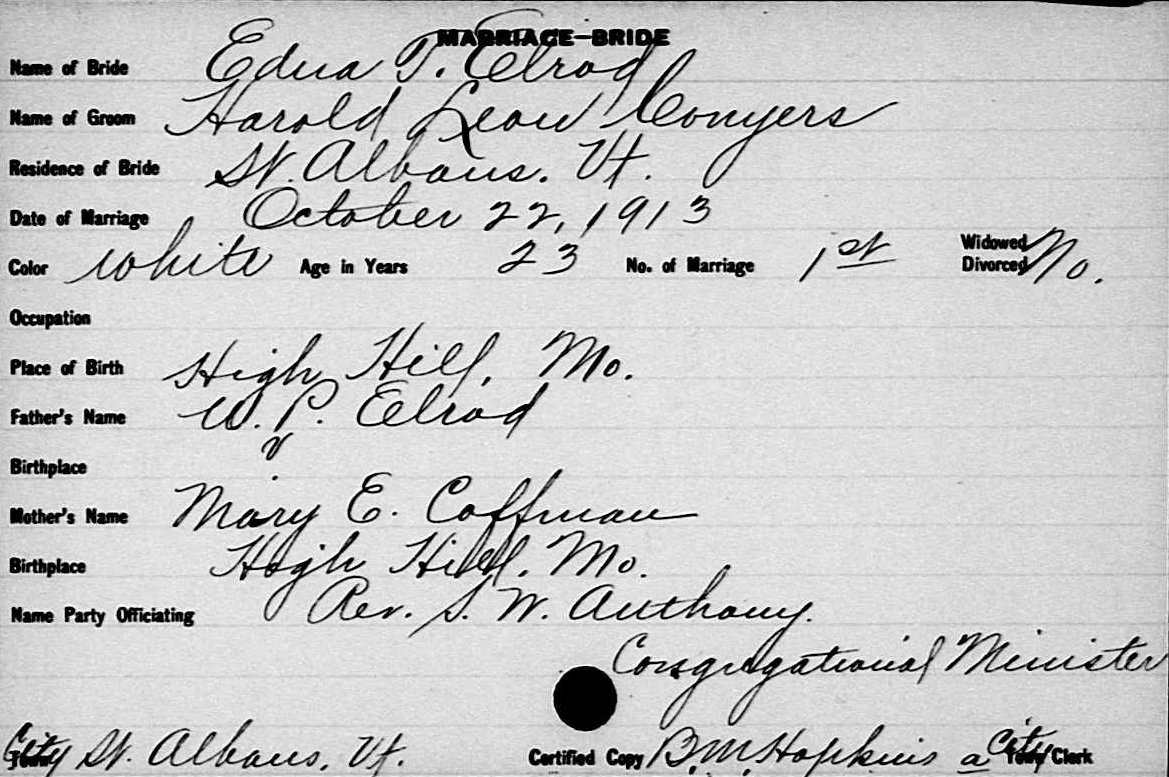 MARRIAGE—BRIDE
Name of Bride Edna T. Elrod
Name of Groom Harold Leon Conyers
Residence of Bride St. Albans, Vt.
Date of Marriage October 22, 1913
Color white Age in Years 23 No. of Marriage 1st Widowed Divorced No.
Occupation
Place of Birth High Hill, Mo.
Father's Name W. P. Elrod
Birthplace
Mother's Name Mary E. Coffman
Birthplace High Hill, Mo.
Name Party Officiating Rev. S. W. Anthony.
Congregational Minister
City St. Albans, Vt. Certified Copy B. M. Hopkins a City Clerk